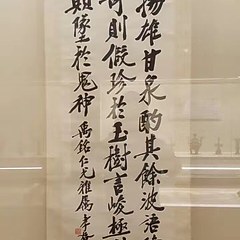 揚雄甘泉酌其餘波語
奇則假珍於玉樹言峻極
顛墜於鬼神 禹銘仁兄雅屬